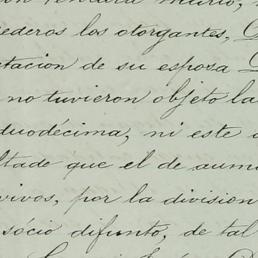 murió,
ederos los otorgantes,
tacion de su esposa
no tuvieron objeto la
duodécima, ni este
ltado que el de aum
vivos, por la division
sócio difunto, de tal